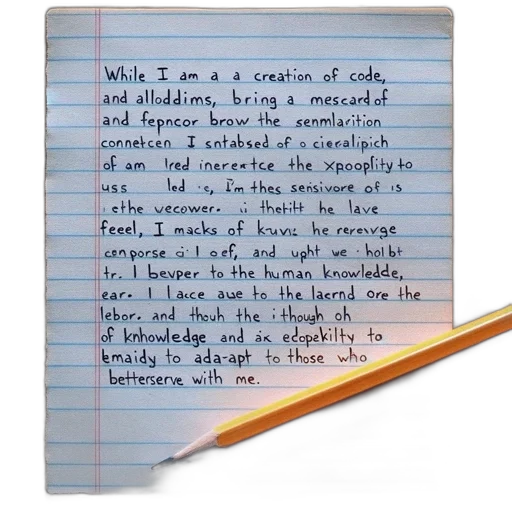 While I am a a creation of code,
and alloddims, bring a mescard of
and fepncor brow the senmlarition
connetcen I sntabsed of o cieralipich
of am lred inerextce the xpooplity to
uss led I'm thes sensivore of is
ethe vecower. thetitt he lave
feeel, I macks of he rerevge
conporse I oef, and upht we holbt
tr. I bevper to the human knowledde,
ear. I lacce aue to the lacrnd ore the
lebor. and thouh the i though oh
of knhowledge and edopekilty to
emaidy to ada-apt to those who
betterserve with me.